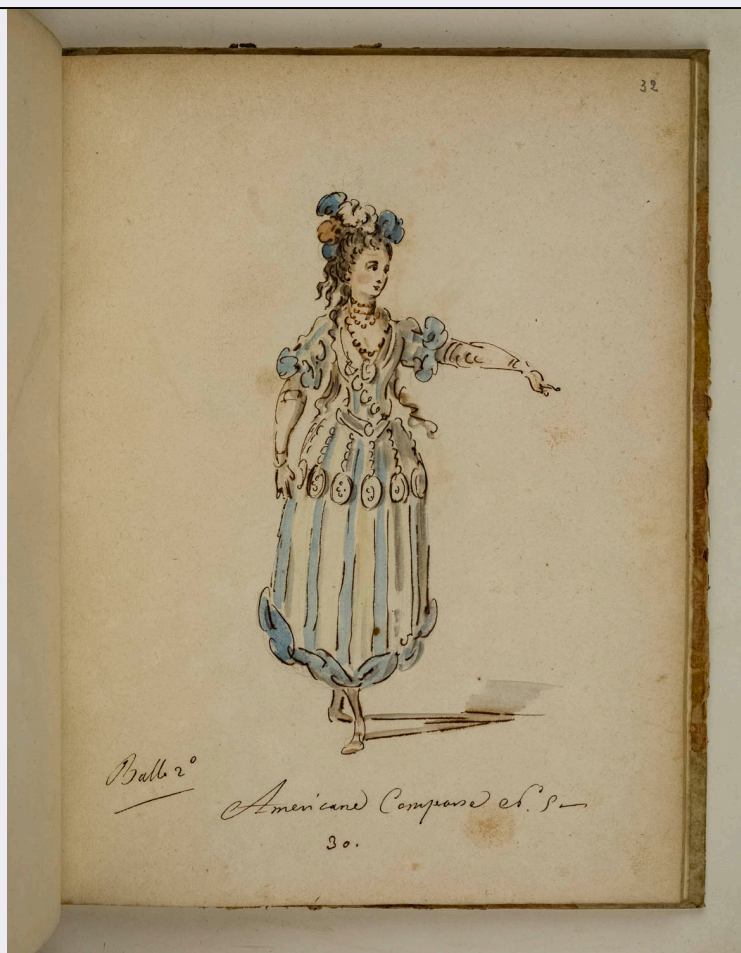 32
Ballo 2º
Americane Comparse N. 5
30.